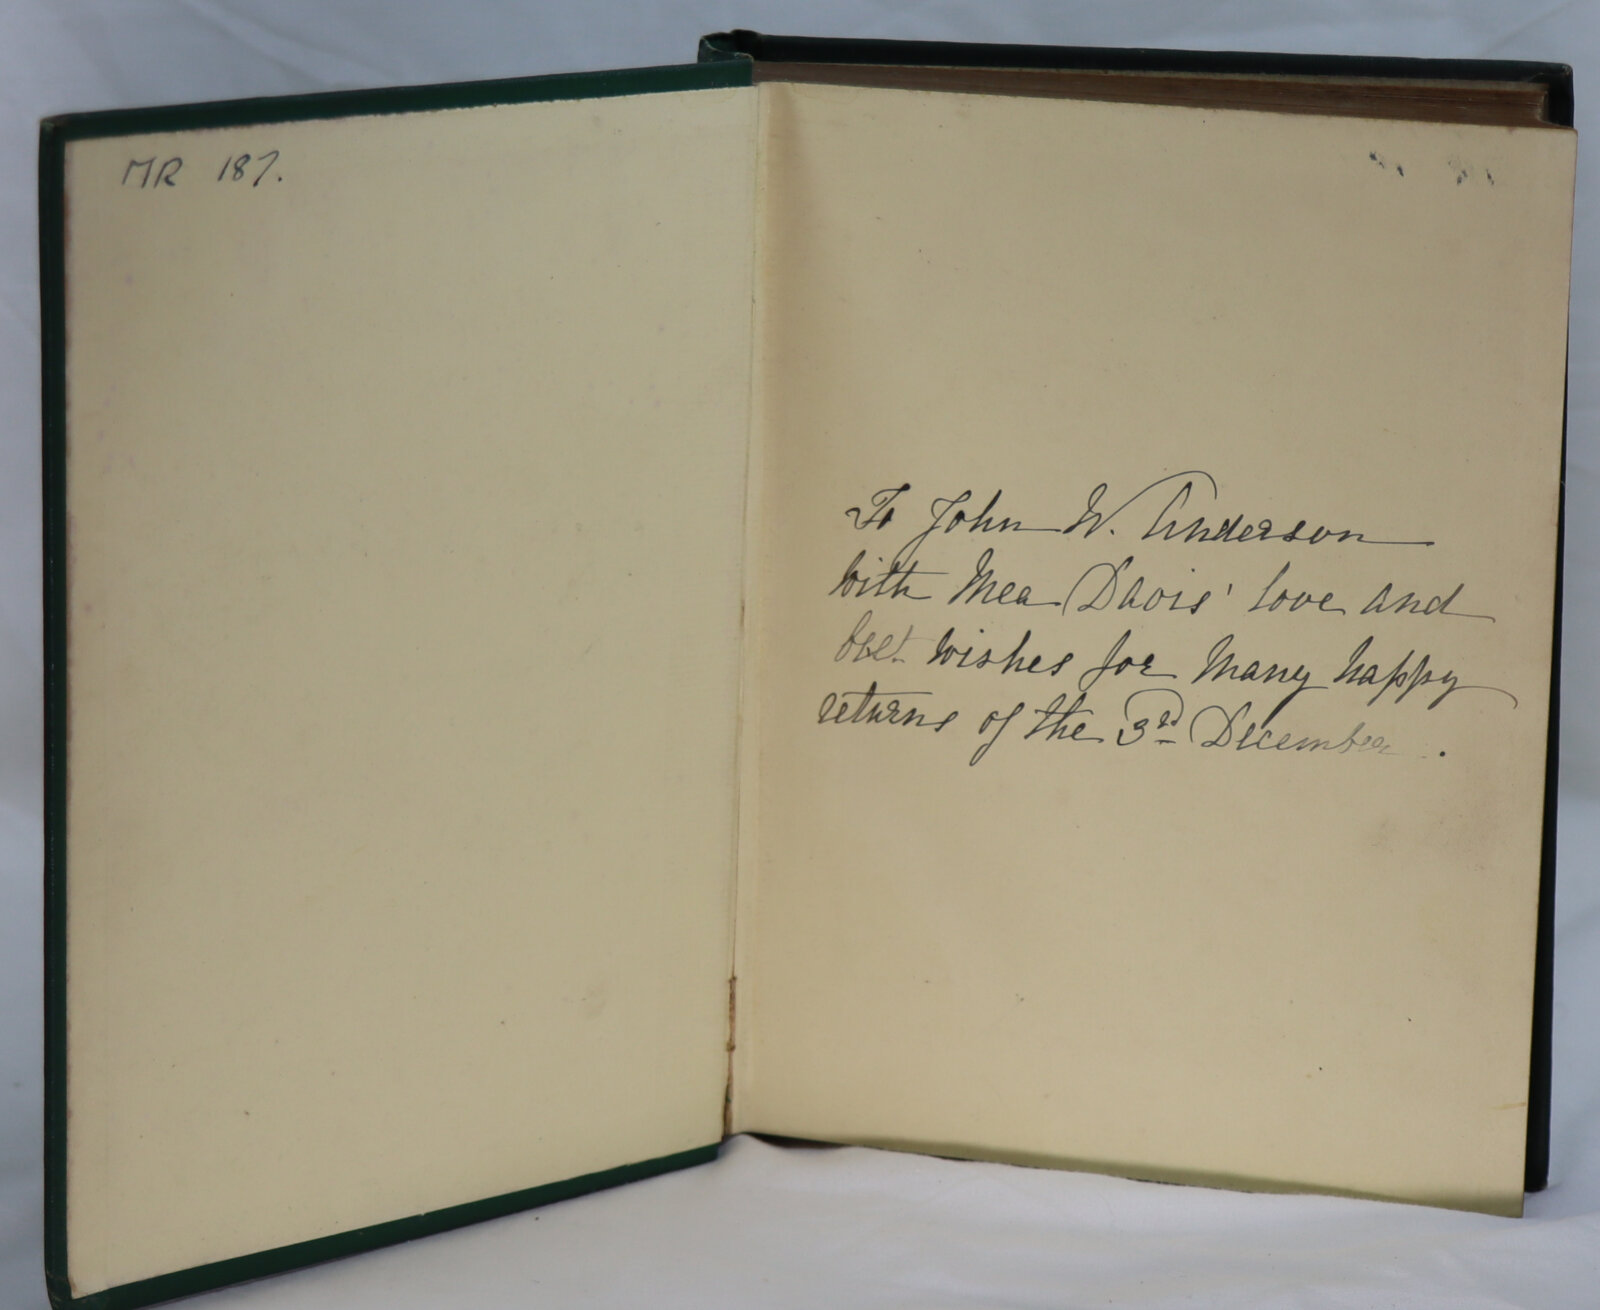 MR 187.
To John W. Anderson
with Mea Davis' love and
best wishes for many happy
returns of the 3rd December.